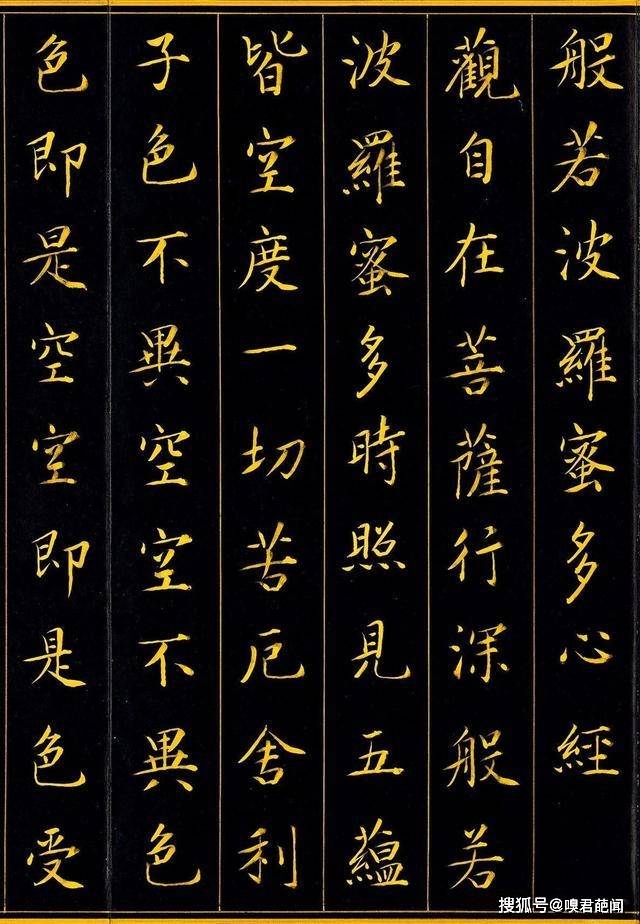 般若波羅蜜多心經
觀自在菩薩行深般若
波羅蜜多時照見五蘊
皆空度一切苦厄舍利
子色不異空空不異色
色即是空空即是色受
搜狐号@嗅君葩闻